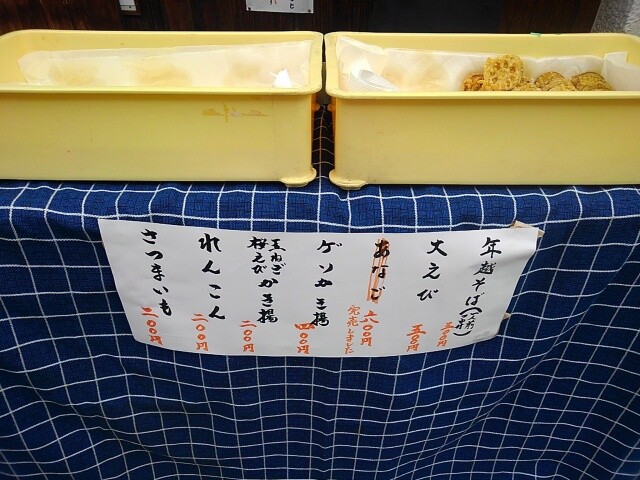 年越そば
大えび
あなご
六〇〇円
完売しました
ゲソかき揚
四〇〇円
玉ねぎ
桜えび
かき揚
二〇〇円
れんこん
二〇〇円
さつまいも
二〇〇円